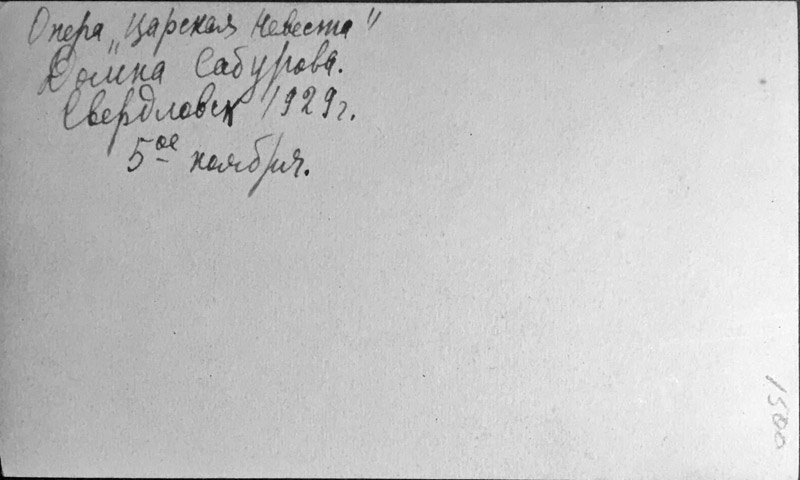 Опера „Царская Невеста"
Домна Сабурова.
Свердловск 1929г.
5ое ноября.
1500